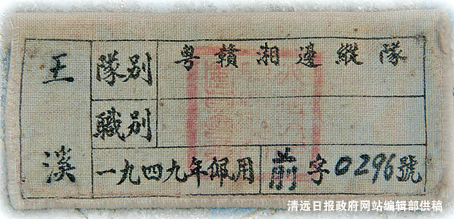 王溪
隊别 粵贛湘邊縱隊
職别
一九四九年佩用 前字0296號
清远日报政府网站编辑部供稿